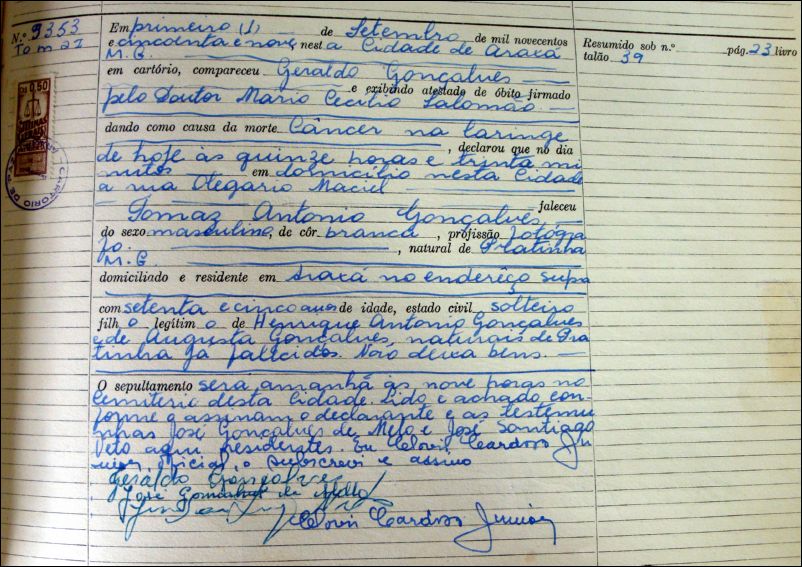 N.º 9353
Tomaz
Em primeiro (1) de Setembro de mil novecentos
e cincoenta e nove, nesta Cidade de Araxá
M.G.
em cartório, compareceu Geraldo Gonçalves
e exibindo atestado de óbito firmado
pelo Doutor Mario Cecilio Salomão
dando como causa da morte Câncer na laringe
, declarou que no dia
de hoje às quinze horas e trinta mi
nutos em domicílio nesta Cidade
a rua Olegario Maciel
Tomaz Antonio Gonçalves faleceu
do sexo masculino, de côr branca, profissão fotógra
fo. , natural de Pratinha
M.G.
domiciliado e residente em Araxá no endereço supra
com setenta e cinco anos de idade, estado civil solteiro
filho legítimo de Henrique Antonio Gonçalves
e de Augusta Gonçalves, naturais de Pra
tinha já falecidos. Não deixa bens.
O sepultamento será amanhã às nove horas no
Cemiterio desta Cidade. Lido e achado con
forme o assinam o declarante e as testemu
nhas José Gonçalves de Melo e José Santiago
Neto aqui residentes. Eu Clovis Cardoso Ju
nior, Oficial, o subscrevi e assino
Geraldo Gonçalves
José Gonçalves de Mello
Clovis Cardoso Junior
Resumido sob n.º pág. 23 livro
talão 39
Cr$ 0,50
MINAS
GERAIS
CARTORIO DE